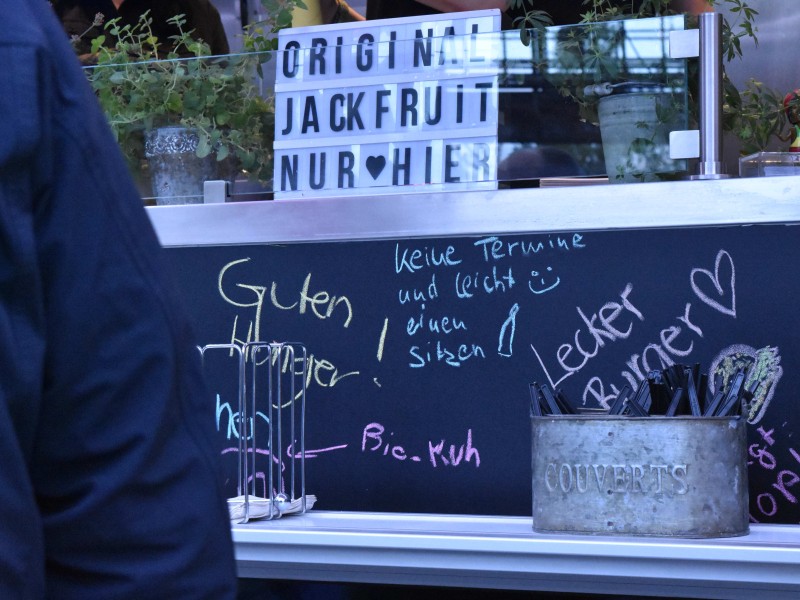 ORIGINAL
JACKFRUIT
NUR ♥ HIER
Guten
Hunger!
Keine Termine
und leicht
einen
sitzen
Lecker
Burger
Bio-Kuh
COUVERTS